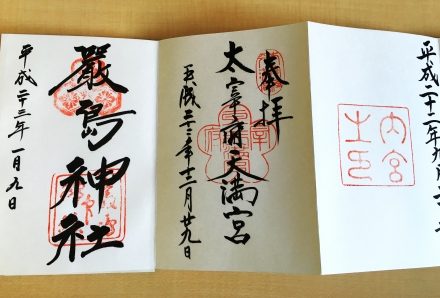 平成二十二年九月
内宮之印
奉拝
太宰府天満宮
平成二十二年十二月廿九日
嚴島神社
平成二十三年一月九日